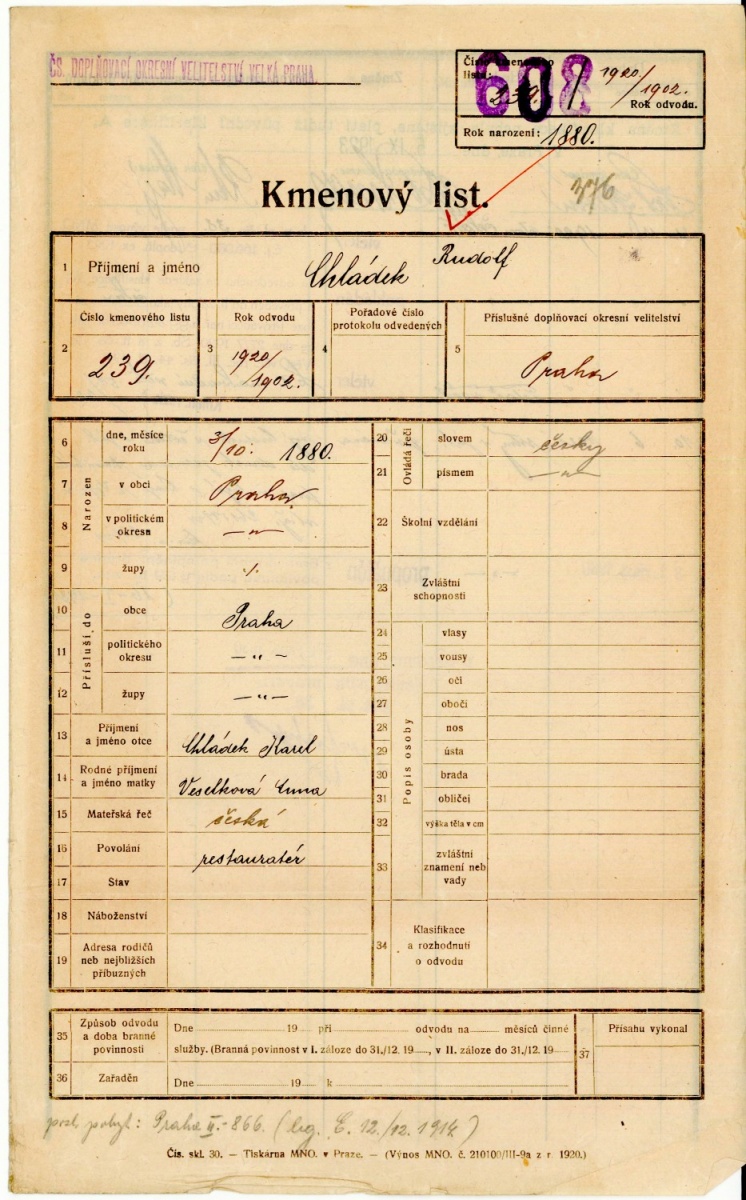 ČS. DOPLŇOVACÍ OKRESNÍ VELITELSTVÍ VELKÁ PRAHA.
Číslo kmenového
listu:
239. / 1920/1902.
608
Rok odvodu.
Rok narození: 1880.
376
Kmenový list.
1 Příjmení a jméno Chládek Rudolf
2 Číslo kmenového listu 239.
3 Rok odvodu 1920/1902.
4 Pořadové číslo protokolu odvedených
5 Příslušné doplňovací okresní velitelství Praha
Narozen
6 dne, měsíce roku 3/10. 1880.
7 v obci Praha
8 v politickém okresu —„—
9 župy ·/.
Přísluší do
10 obce Praha
11 politického okresu —„—
12 župy —„—
13 Příjmení a jméno otce Chládek Karel
14 Rodné příjmení a jméno matky Veselková Anna
15 Mateřská řeč česká
16 Povolání restauratér
17 Stav
18 Náboženství
19 Adresa rodičů neb nejbližších příbuzných
Ovládá řečí
20 slovem česky
21 písmem —„—
22 Školní vzdělání
23 Zvláštní schopnosti
Popis osoby
24 vlasy
25 vousy
26 oči
27 obočí
28 nos
29 ústa
30 brada
31 obličej
32 výška těla v cm
33 zvláštní znamení neb vady
34 Klasifikace a rozhodnutí o odvodu
35 Způsob odvodu a doba branné povinnosti
Dne 19 při odvodu na měsíců činné
služby. (Branná povinnost v I. záloze do 31./12. 19 , v II. záloze do 31./12. 19
36 Zařaděn Dne 19 k
37 Přísahu vykonal
posl. pobyt: Praha II.-866. (leg. E. 12./12. 1914)
Čís. skl. 30. — Tiskárna MNO. v Praze. — (Výnos MNO. č. 210100/III-9a z r. 1920.)